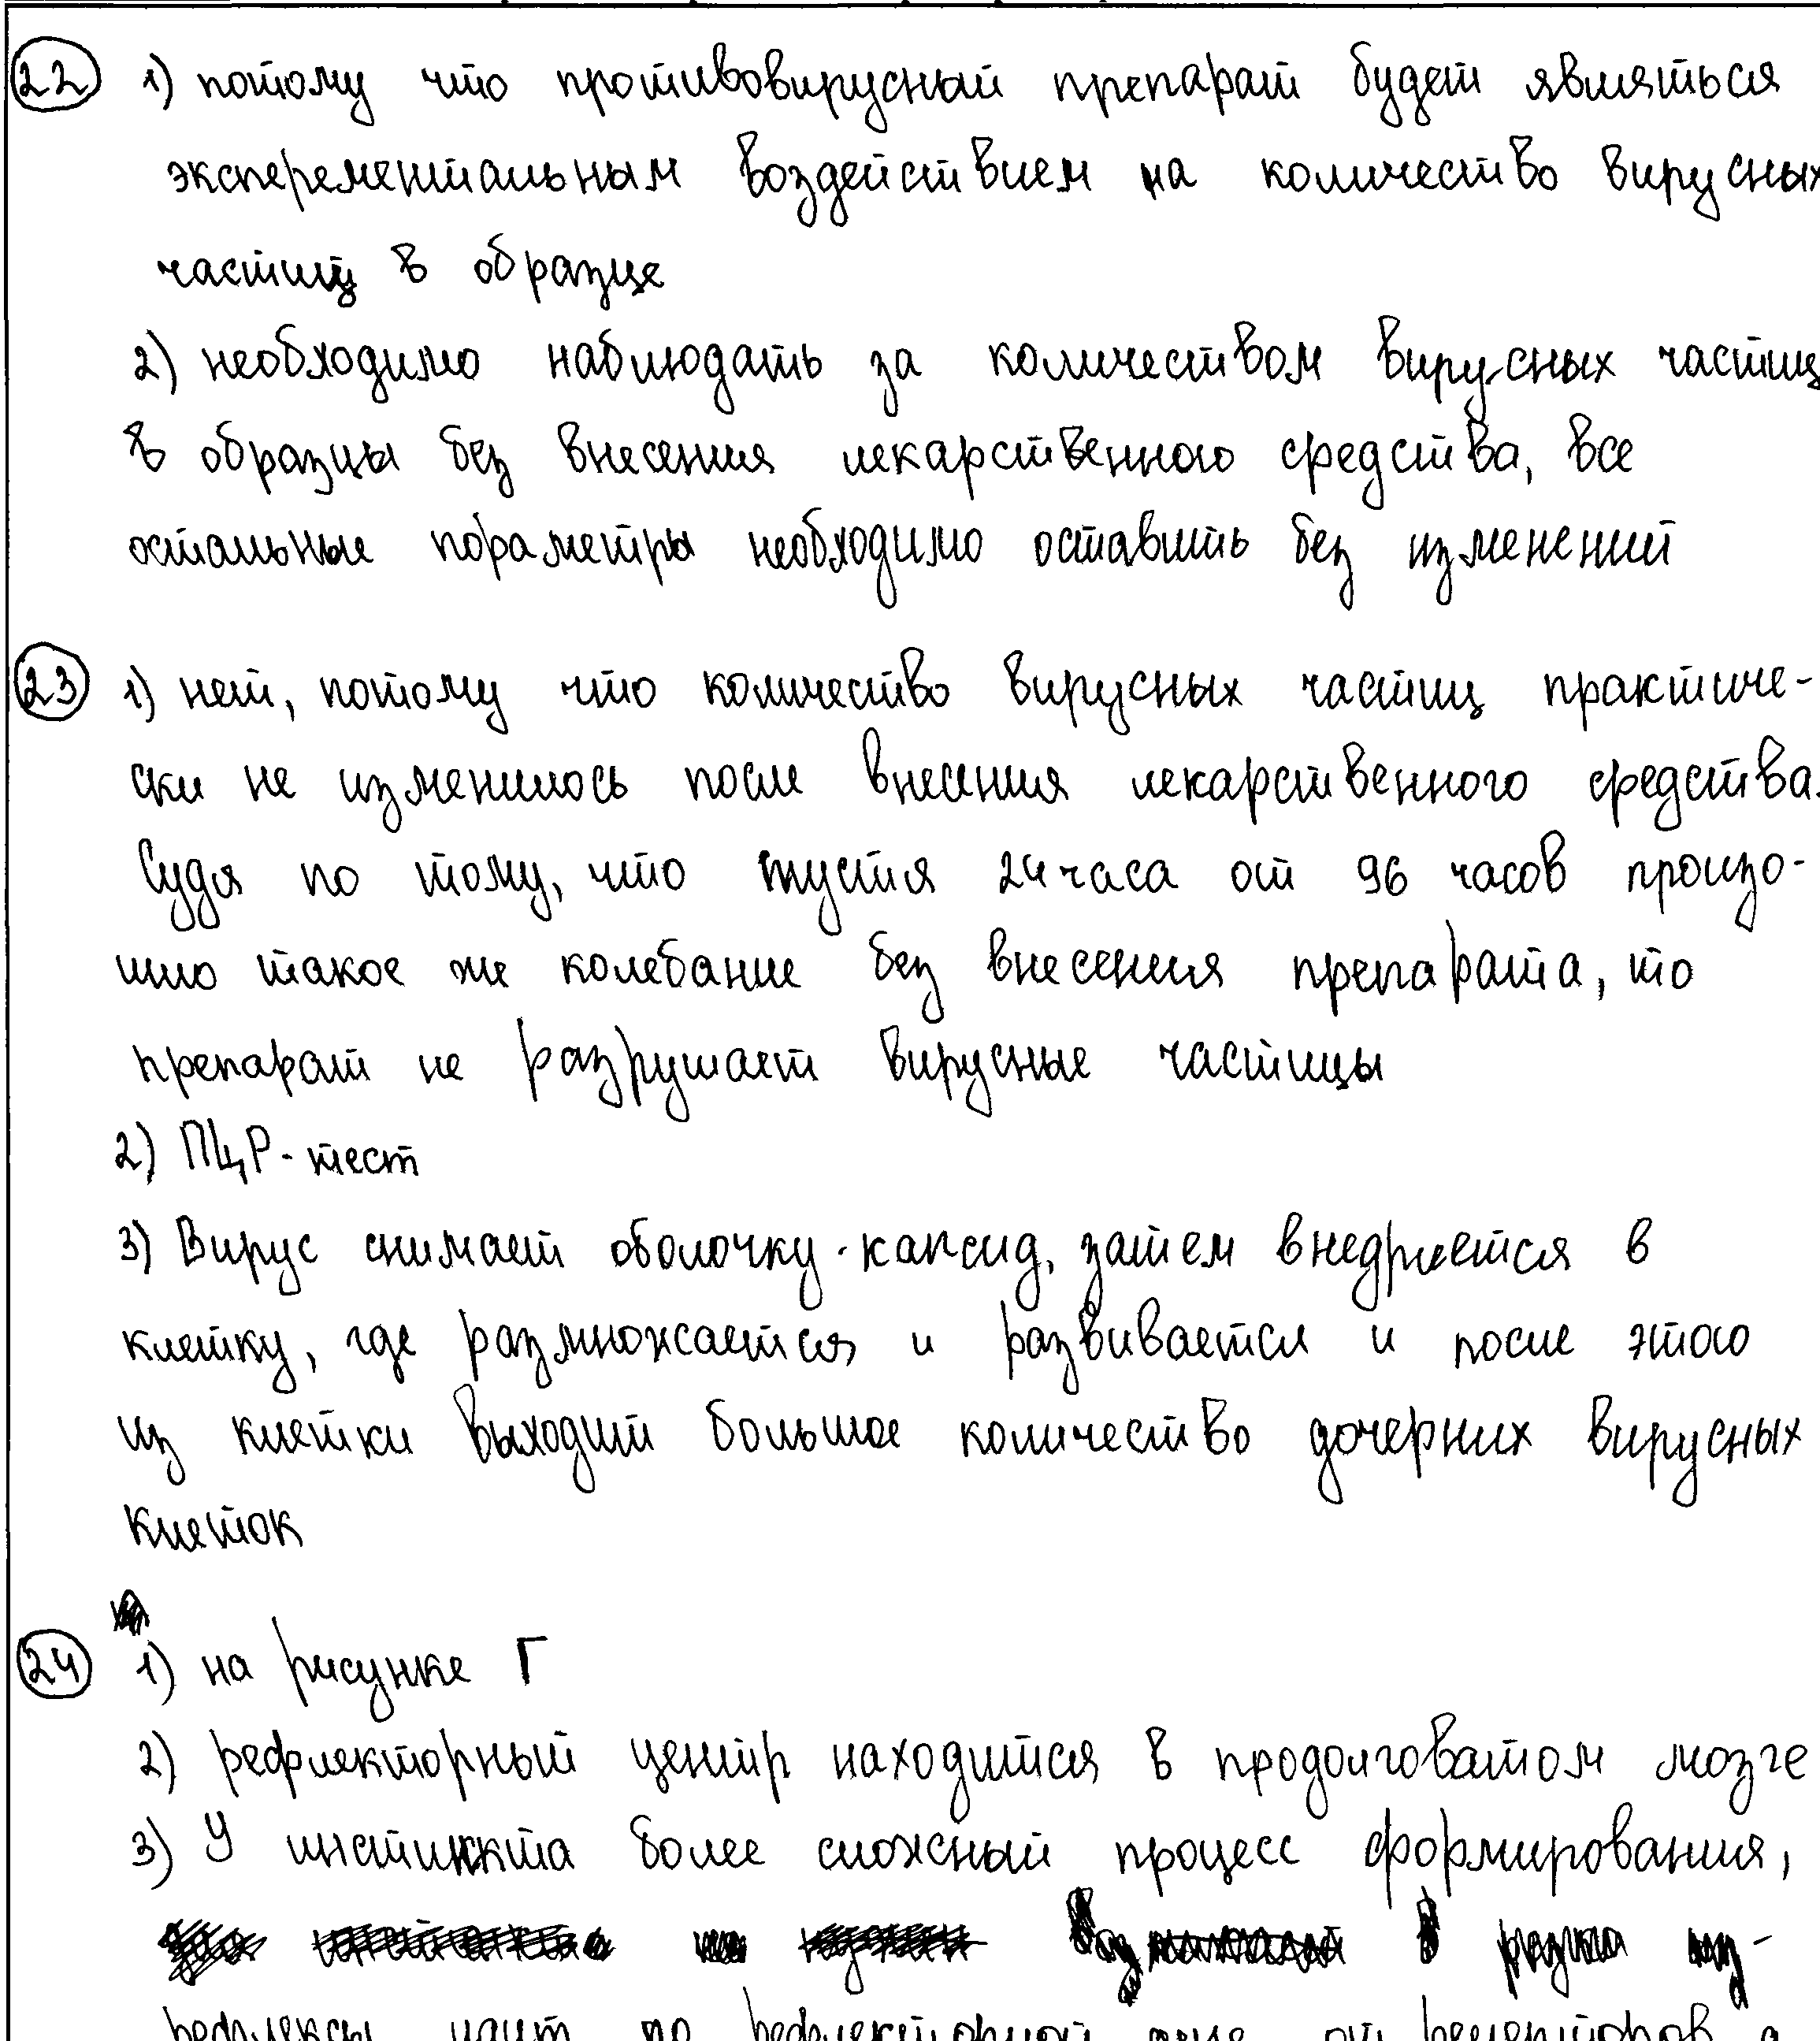 22 1) потому что противовирусный препарат будет являться
эксперементальным воздействием на количество вирусных
частиц в образце
2) необходимо наблюдать за количеством вирусных частиц
в образцы без внесения лекарственного средства, все
остальные пораметры необходимо оставить без изменений
23 1) нет, потому что количество вирусных частиц практиче-
ски не изменилось после внесения лекарственного средства.
Судя по тому, что спустя 24 часа от 96 часов произо-
шло такое же колебание без внесения препарата, то
препарат не разрушает вирусные частицы
2) ПЦР-тест
3) Вирус снимает оболочку-капсид, затем внедряется в
клетку, где размножается и развивается и после этого
из клетки выходит большое количество дочерних вирусных
клеток
24 1) на рисунке Г
2) рефлекторный центр находится в продолговатом мозге
3) У инстинкта более сложный процесс формирования,
рефлексы идут по рефлекторной дуге от рецепторов